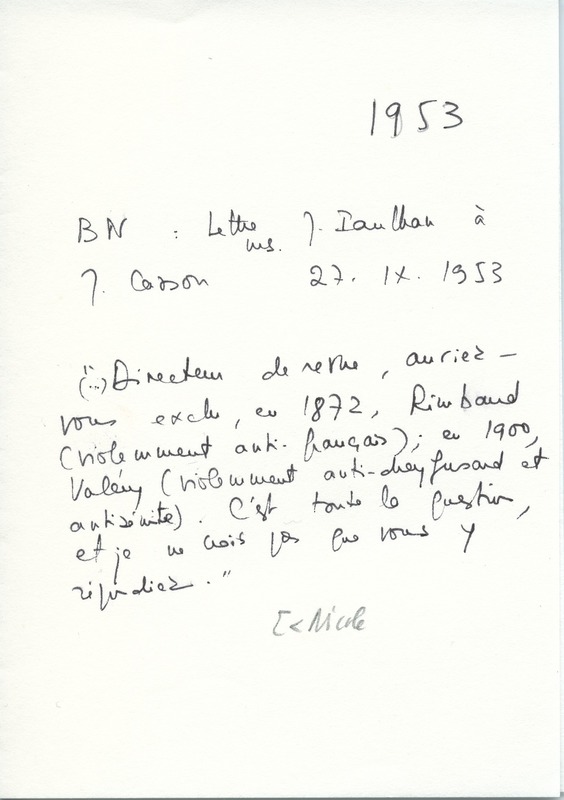 1953
BN : Lettre
ms. J. Paulhan à
J. Cassou 27. IX. 1953
"(...) Directeur de revue, auriez-
vous exclu, en 1872, Rimbaud
(violemment anti-français) ; en 1900,
Valéry (violemment anti-dreyfusard et
antisémite). C'est toute la question,
et je ne crois pas que vous y
répondiez."
[< Nicole